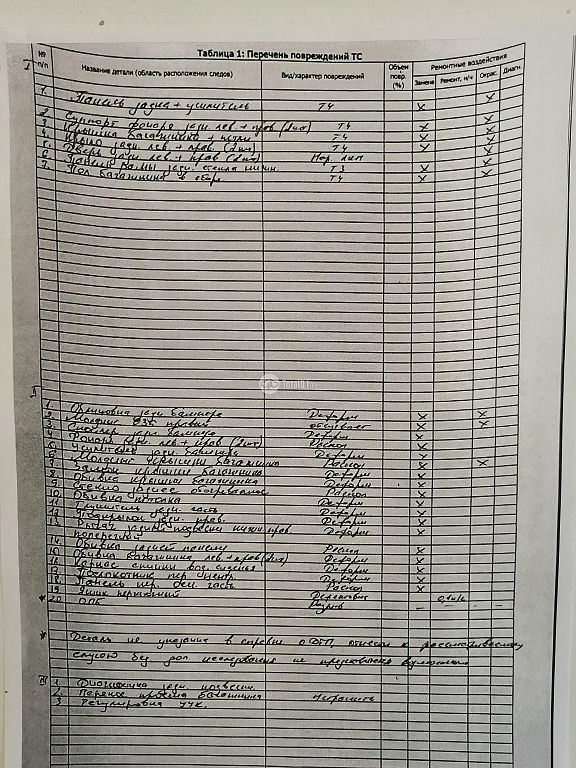 Таблица 1: Перечень повреждений ТС
№ п/п
Название детали (область расположения следов)
Вид/характер повреждений
Объем повр. (%)
Ремонтные воздействия
Замена
Ремонт, н/ч
Окрас.
Диагн.
I
1. Панель задка + усилитель Т4 X X
2. Суппорт фонаря задн. лев. + прав (2шт) Т4 X X
3. Крышка багажника + петли Т4 X X
4. Крыло задн. лев. + прав. (2шт) Т4 X X
5. Дверь задн. лев. + прав (2шт) Нар. лкп X
6. Панель рамы задн. стекла нижн. Т3 X X
7. Пол багажника в сборе Т4 X X
II
1. Облицовка задн. бампера Деформ X X
2. Молдинг отсутств X X
3. Спойлер задн. бампера Деформ X
4. Фонарь задн. лев + прав (2шт) Раскол X
5. Усилитель задн. бампера Деформ X
6. Молдинг крышки багажника Раскол X X
7. Замок крышки багажника Деформ X
8. Обивка крышки багажника Деформ X
9. Стекло заднее обогреваемое Раскол X
10. Обивка потолка Деформ X
11. Глушитель задн. часть Деформ X
12. задн. прав. Деформ X
13. Рычаг задней подвески нижн. прав. Деформ X
поперечный
14. Обивка задней панели Раскол X
15. Обивка багажника лев. + прав (2шт) Деформ X
16. Каркас спинки сиденья Деформ X
17. Подлокотник пер. центр. Деформ X
18. Панель пер. осн. часть Раскол X
19. Ящик перчаточный
* 20. Разрыв – – –
* Деталь не указана в справке о ДТП, отнести к рассматриваемому
случаю без доп. исследования не представляется возможным
III 1. Диагностика задн. подвески.
2. Перекос проема багажника Устранить
3. Регулировка УУК.